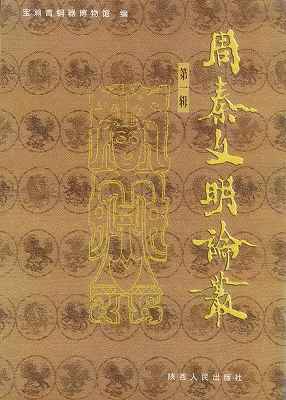 宝鸡青铜器博物馆 编
周秦文明論叢
第一辑
陕西人民出版社